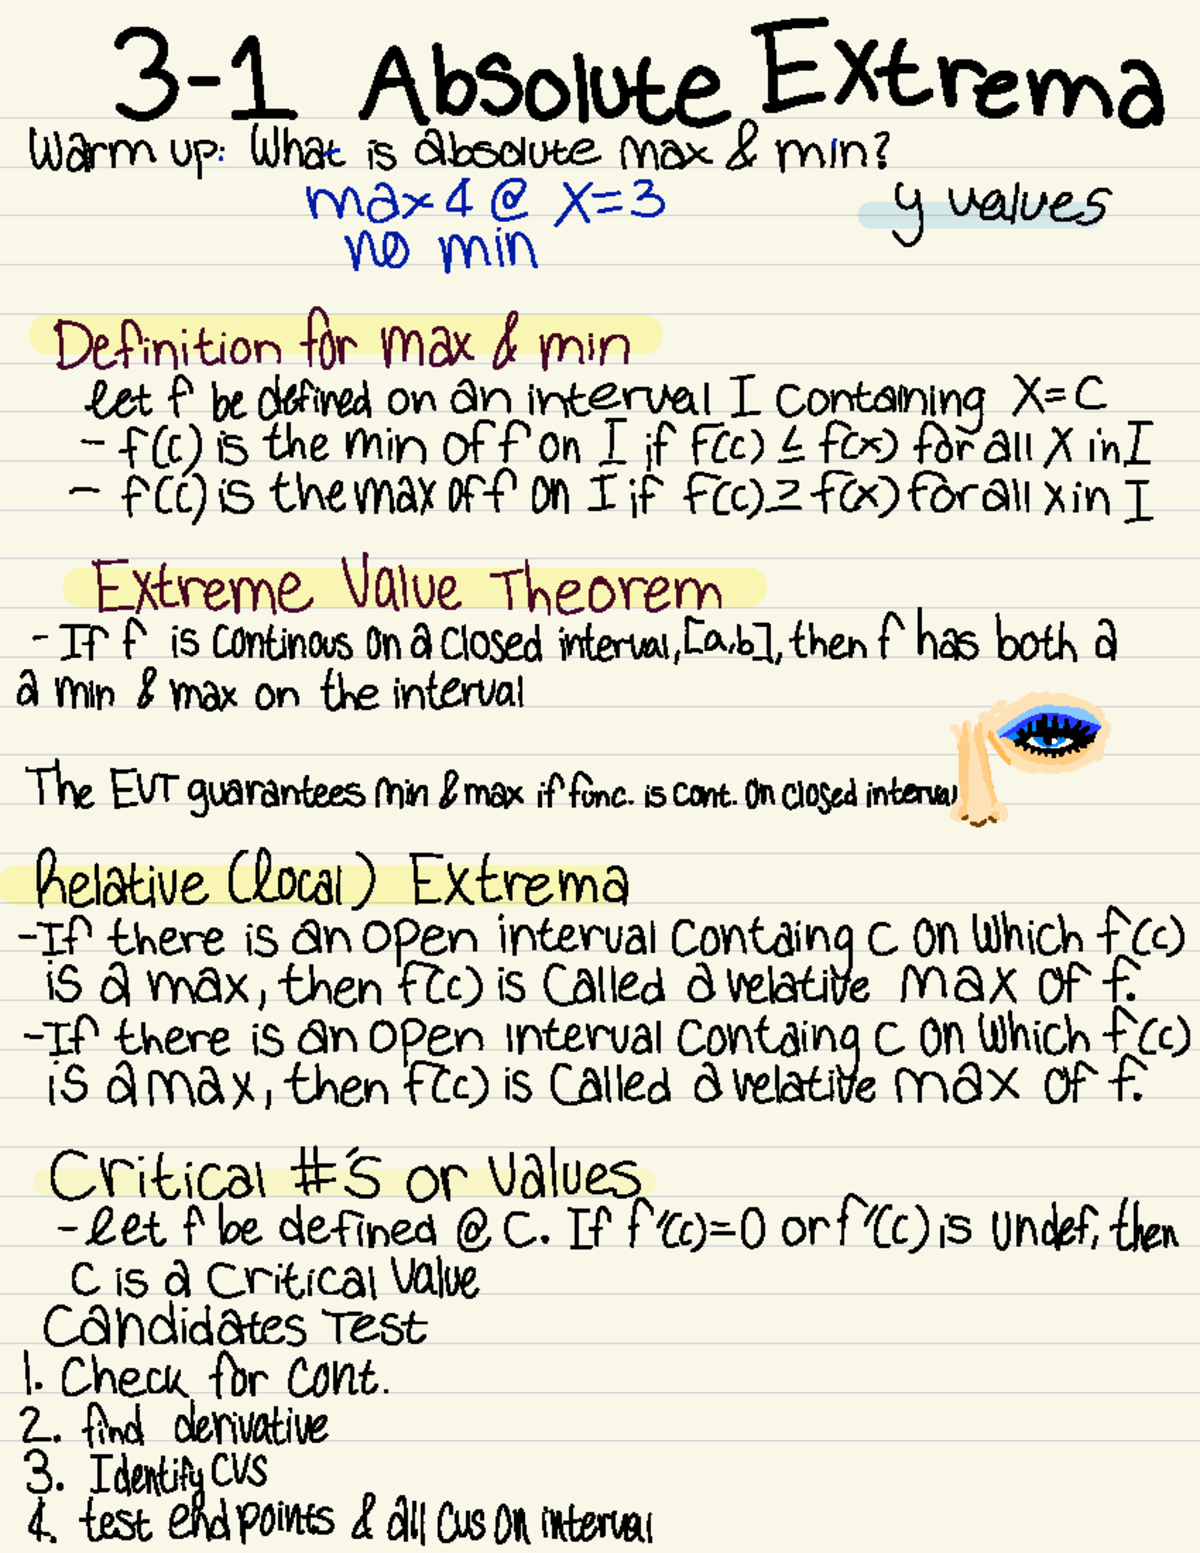 3-1 Absolute Extrema
Warm up: What is absolute max & min?
max 4 @ x=3 y values
no min
Definition for max & min
let f be defined on an interval I containing X=C
- f(c) is the min of f on I if f(c) ≤ f(x) for all X in I
- f(c) is the max of f on I if f(c) ≥ f(x) for all x in I
Extreme Value Theorem
- If f is continous on a closed interval, [a,b], then f has both a
a min & max on the interval
The EVT guarantees min & max if func. is cont. on closed interval
Relative (local) Extrema
-If there is an open interval containg c on which f(c)
is a max, then f(c) is called a relative max of f.
-If there is an open interval containg c on which f(c)
is a max, then f(c) is called a relative max of f.
Critical #'s or values
- let f be defined @ c. If f'(c)=0 or f'(c) is undef, then
c is a critical value
Candidates Test
1. Check for cont.
2. find derivative
3. Identify CVS
4. test endpoints & all cvs on interval